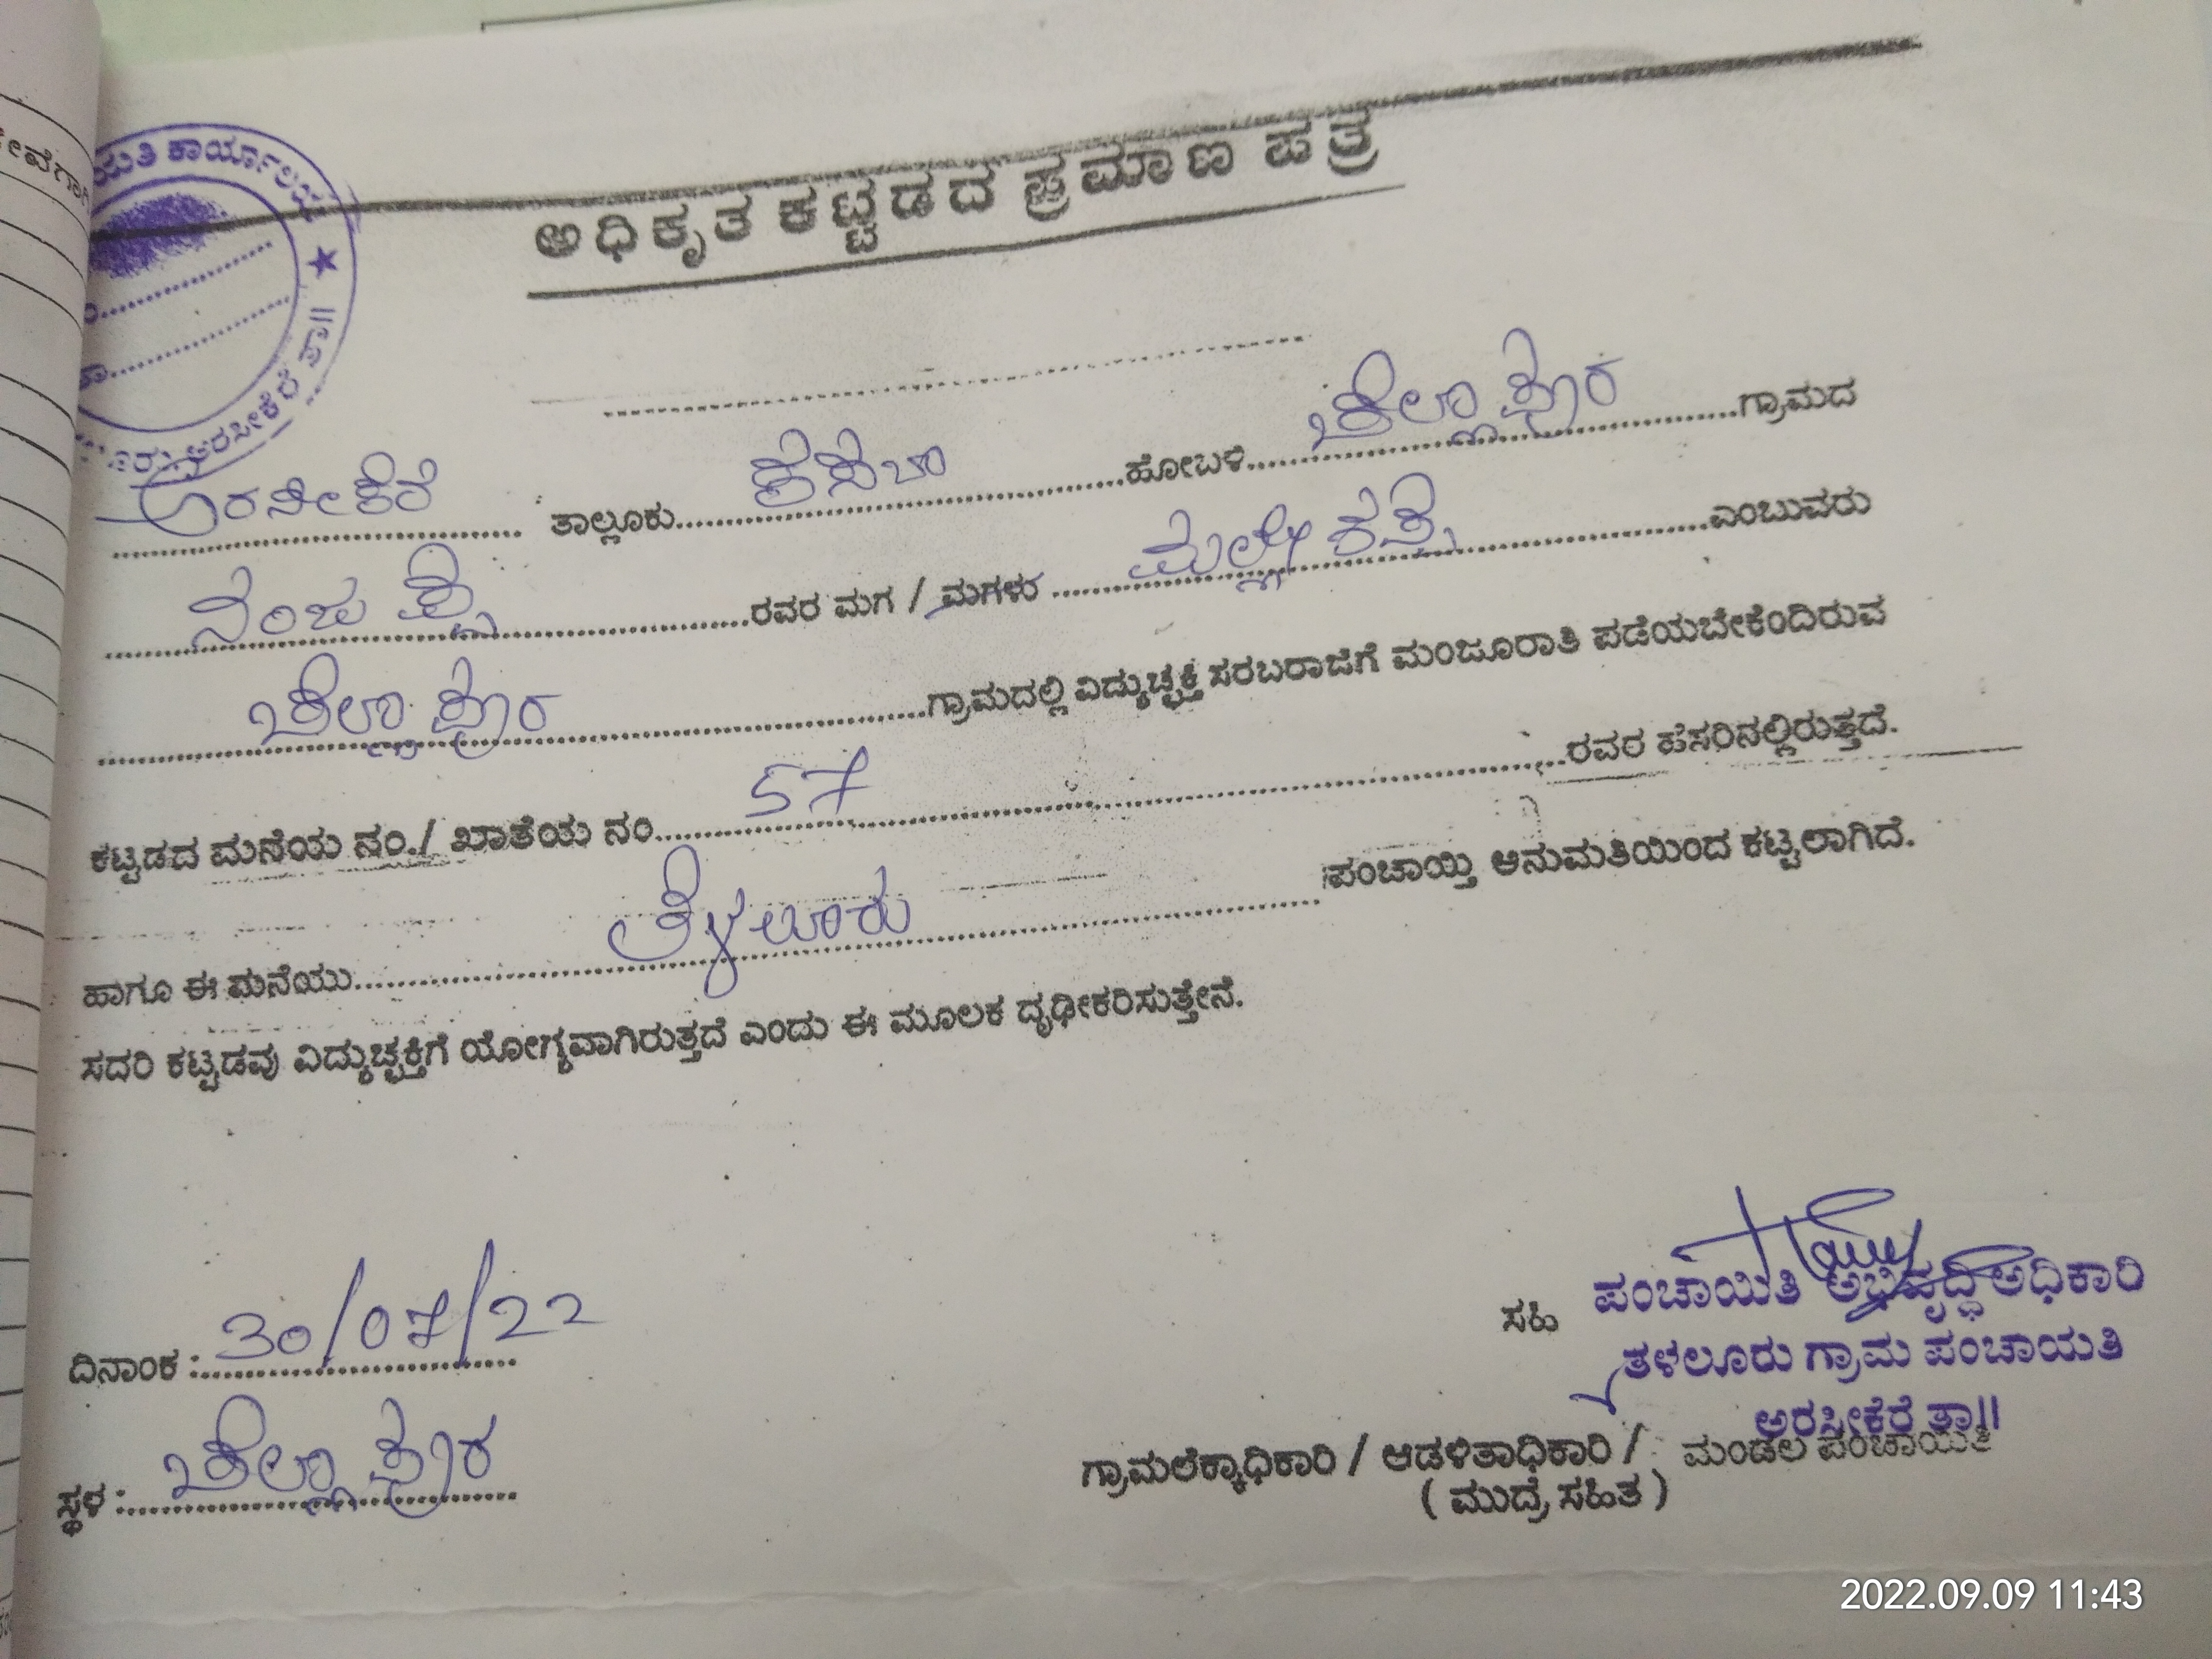 ಯತಿ ಕಾರ್ಯಾಲಯ
ಅರಸೀಕೆರೆ ತಾ||
ಅಧಿಕೃತ ಕಟ್ಟಡದ ಪ್ರಮಾಣ ಪತ್ರ
ಅರಸೀಕೆರೆ ತಾಲ್ಲೂಕು ಕಸಬಾ ಹೋಬಳಿ ಚೆಲ್ಲಾಪುರ ಗ್ರಾಮದ
ನಂಜಪ್ಪ ರವರ ಮಗ / ಮಗಳು ಎಂಬುವರು
ಚೆಲ್ಲಾಪುರ ಗ್ರಾಮದಲ್ಲಿ ವಿದ್ಯುಚ್ಛಕ್ತಿ ಸರಬರಾಜಿಗೆ ಮಂಜೂರಾತಿ ಪಡೆಯಬೇಕೆಂದಿರುವ
ಕಟ್ಟಡದ ಮನೆಯ ನಂ./ ಖಾತೆಯ ನಂ 57 ರವರ ಹೆಸರಿನಲ್ಲಿರುತ್ತದೆ.
ಹಾಗೂ ಈ ಮನೆಯು ತಳಲೂರು ಪಂಚಾಯ್ತಿ ಅನುಮತಿಯಿಂದ ಕಟ್ಟಲಾಗಿದೆ.
ಸದರಿ ಕಟ್ಟಡವು ವಿದ್ಯುಚ್ಛಕ್ತಿಗೆ ಯೋಗ್ಯವಾಗಿರುತ್ತದೆ ಎಂದು ಈ ಮೂಲಕ ದೃಢೀಕರಿಸುತ್ತೇನೆ.
ದಿನಾಂಕ : 30/07/22
ಸ್ಥಳ : ಚೆಲ್ಲಾಪುರ
ಸಹಿ ಪಂಚಾಯಿತಿ ಅಭಿವೃದ್ಧಿ ಅಧಿಕಾರಿ
ತಳಲೂರು ಗ್ರಾಮ ಪಂಚಾಯತಿ
ಅರಸೀಕೆರೆ ತಾ||
ಗ್ರಾಮಲೆಕ್ಕಾಧಿಕಾರಿ / ಆಡಳಿತಾಧಿಕಾರಿ / ಮಂಡಲ ಪಂಚಾಯತಿ
( ಮುದ್ರೆ ಸಹಿತ )
2022.09.09 11:43